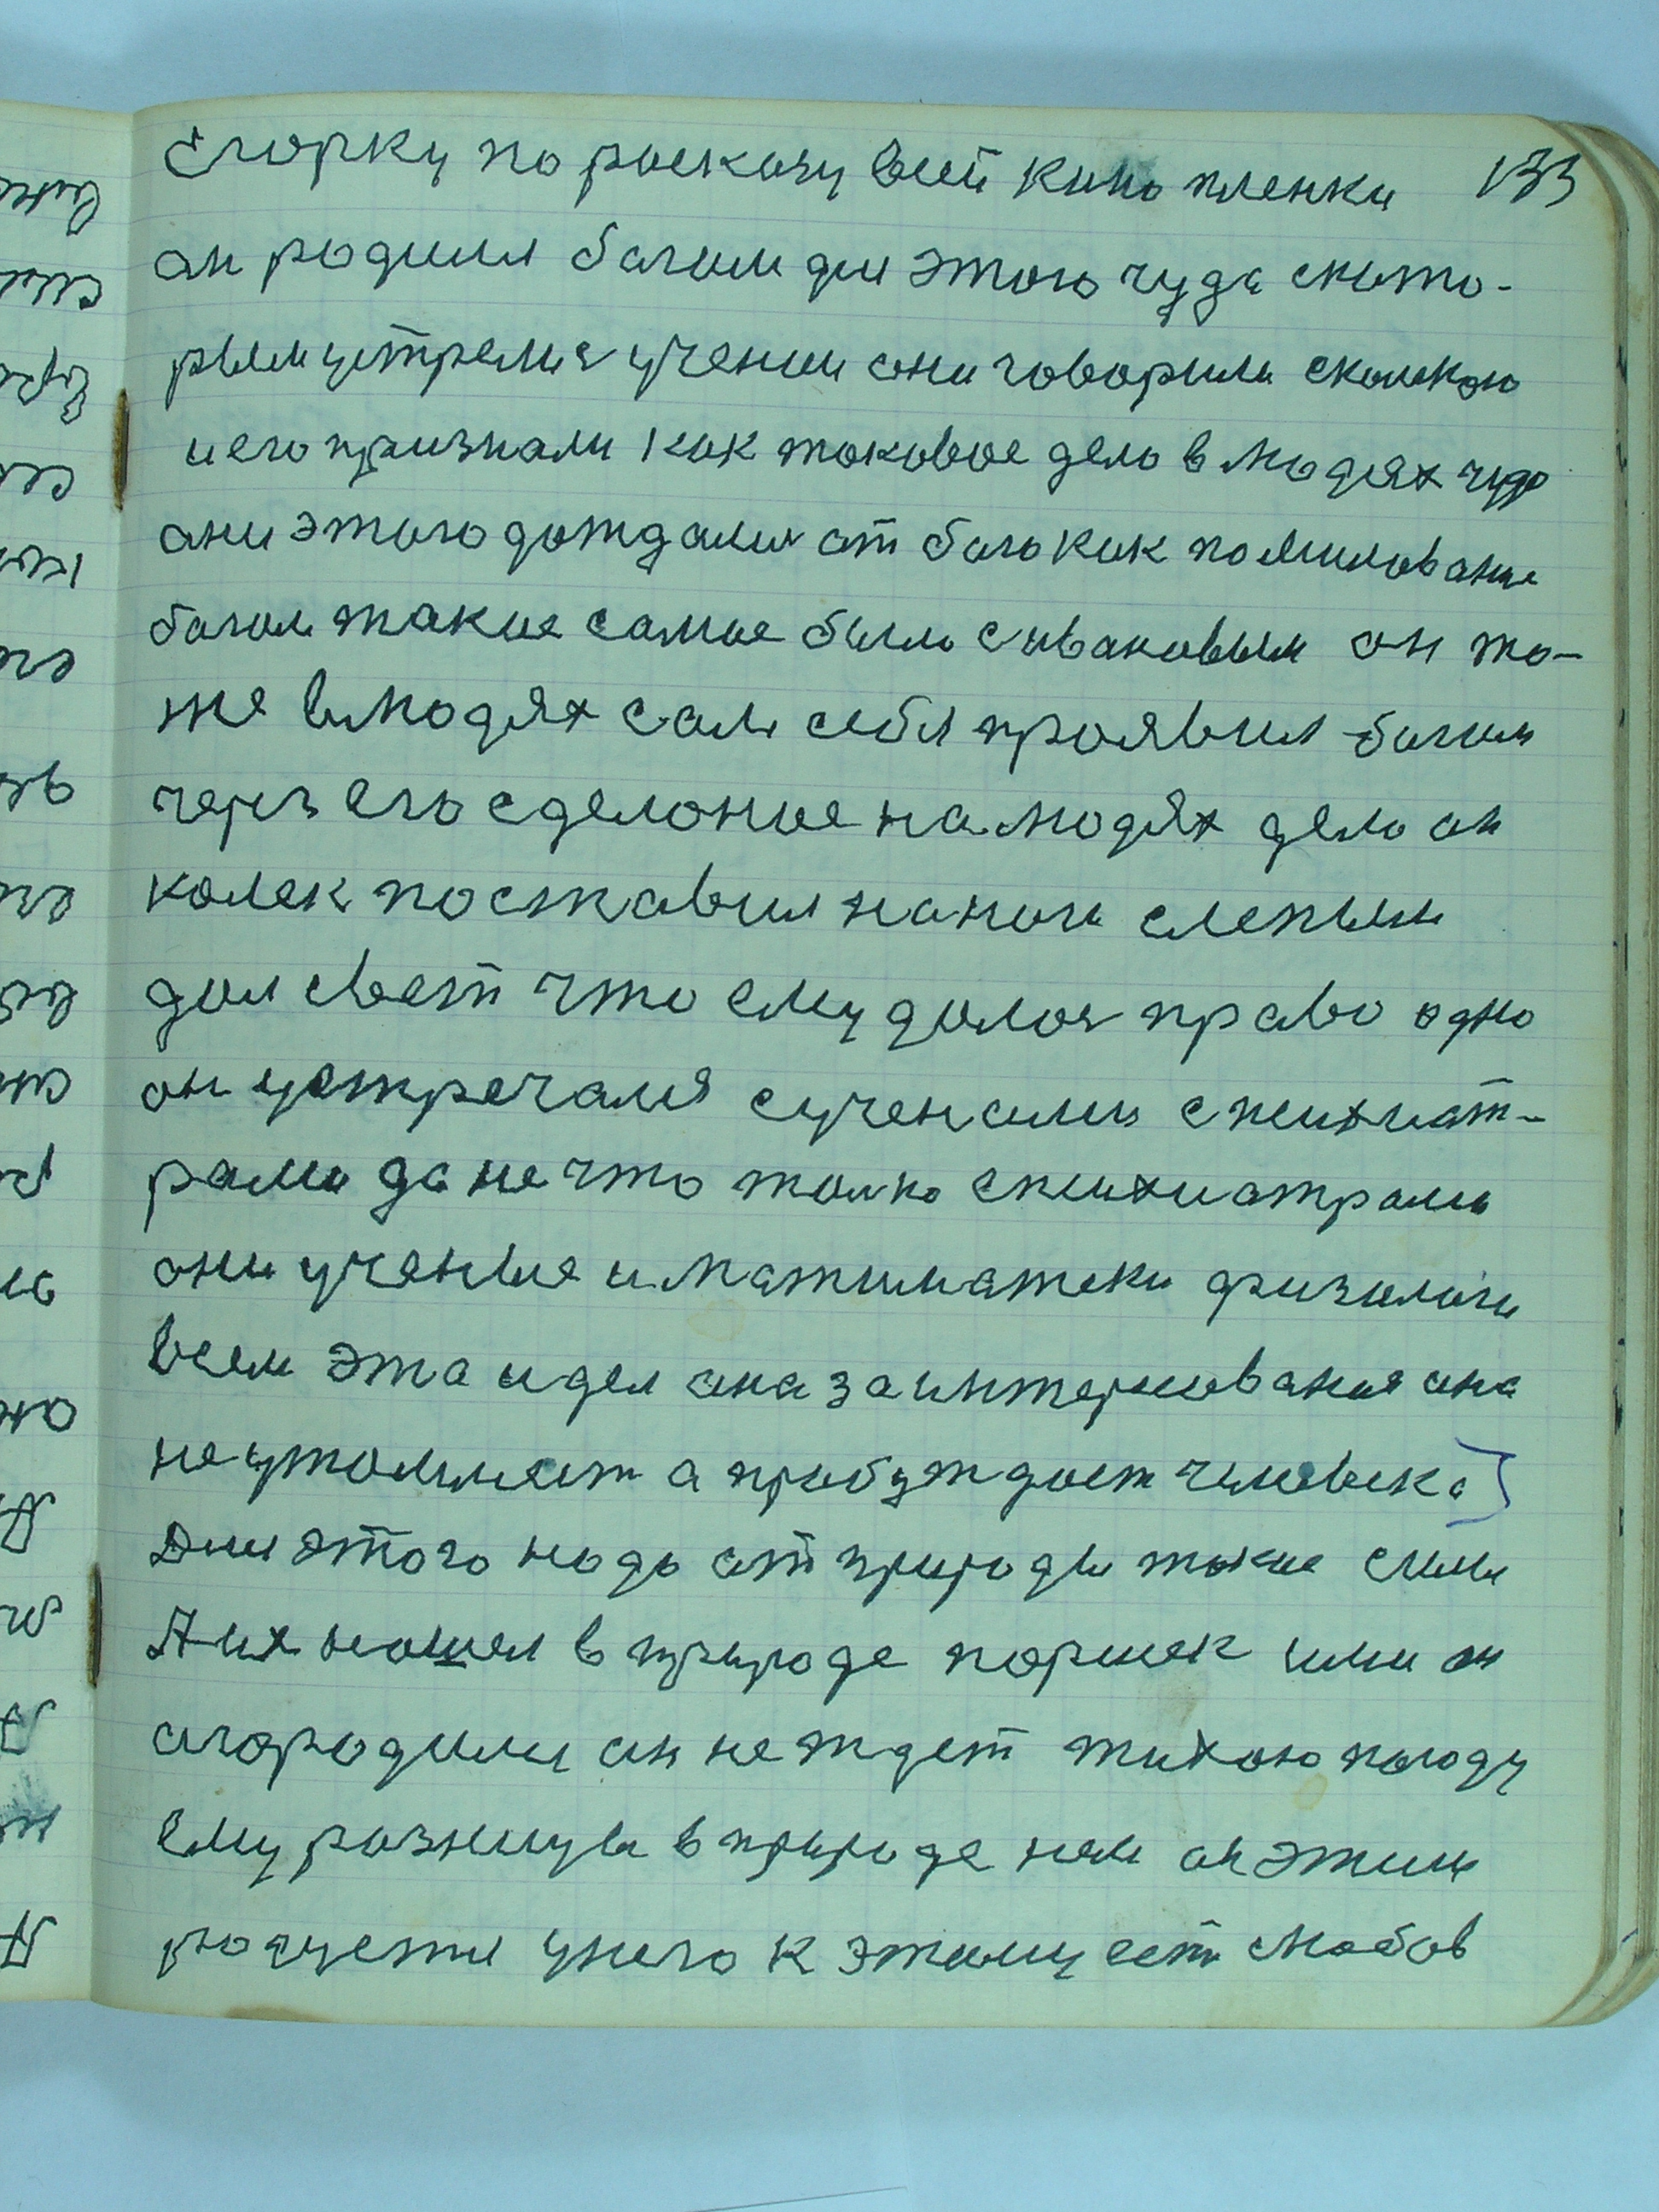 Егорку по росказу всей кино пленки 133
он родился богом для этого чуда ското-
рым устрелися ученые они говорили сколекою
и его признали как токовое дело в людях чудо
они этого дождалися от бога как помилование
богом такие самые было сиваковым он то-
же влюдях сам себя проявил богом
через его сделоное на людях дело он
колек поставил на ноги слепым
дал свет что ему далось право одно
он устречался сученсими спсихиат-
рами да не что толко спсихиатрами
они ученые и матиматеки физиологи
всем эта идея она заинтерисования она
не утомляет а прабуждает человека)
Для этого надо от природы такие силы
А их нашел в природе поршек или он
огородился он не ждет тихою погоду
ему розницы в природе нем он этим
родуется унего к этому есть любов